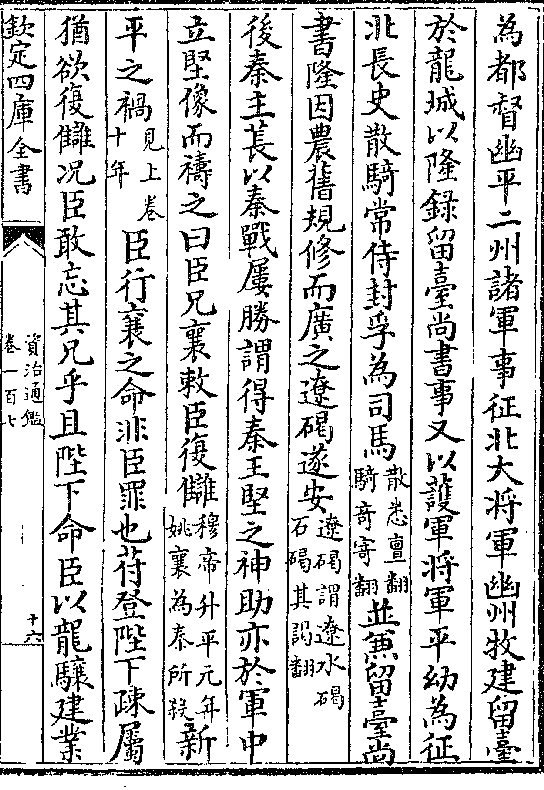 為都督幽平二州諸軍事征北大将軍幽州牧建留臺
於龍城以隆錄留臺尚書事又以護軍將軍平幼為征
北長史散騎常侍封孚為司馬散悉亶翻騎奇寄翻並兼留臺尚
書隆因農舊規修而廣之遼碣遂安遼碣謂遼水碣石碣其謁翻
後秦主萇以秦戰屢勝謂得秦王堅之神助亦於軍中
立堅像而禱之曰臣兄襄敕臣復讎穆帝升平元年姚襄為秦所殺新
平之禍見上卷十年臣行襄之命非臣罪也苻登陛下疎屬
猶欲復讎况臣敢忘其兄乎且陛下命臣以龍驤建業
欽定四庫全書
資治通鑑
卷一百七
十六